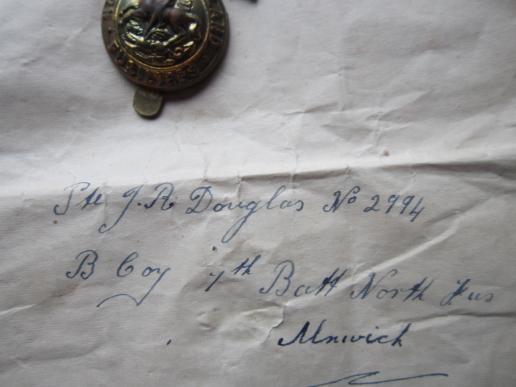 Pte J. R Douglas No 2994
B Coy 7th Batt North Fus
Alnwick